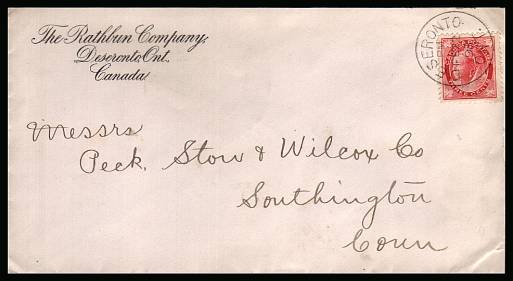 The Rathbun Company,
Deseronto, Ont.
Canada
SERONTO
Messrs
Peck, Stow & Wilcox Co
Southington
Conn